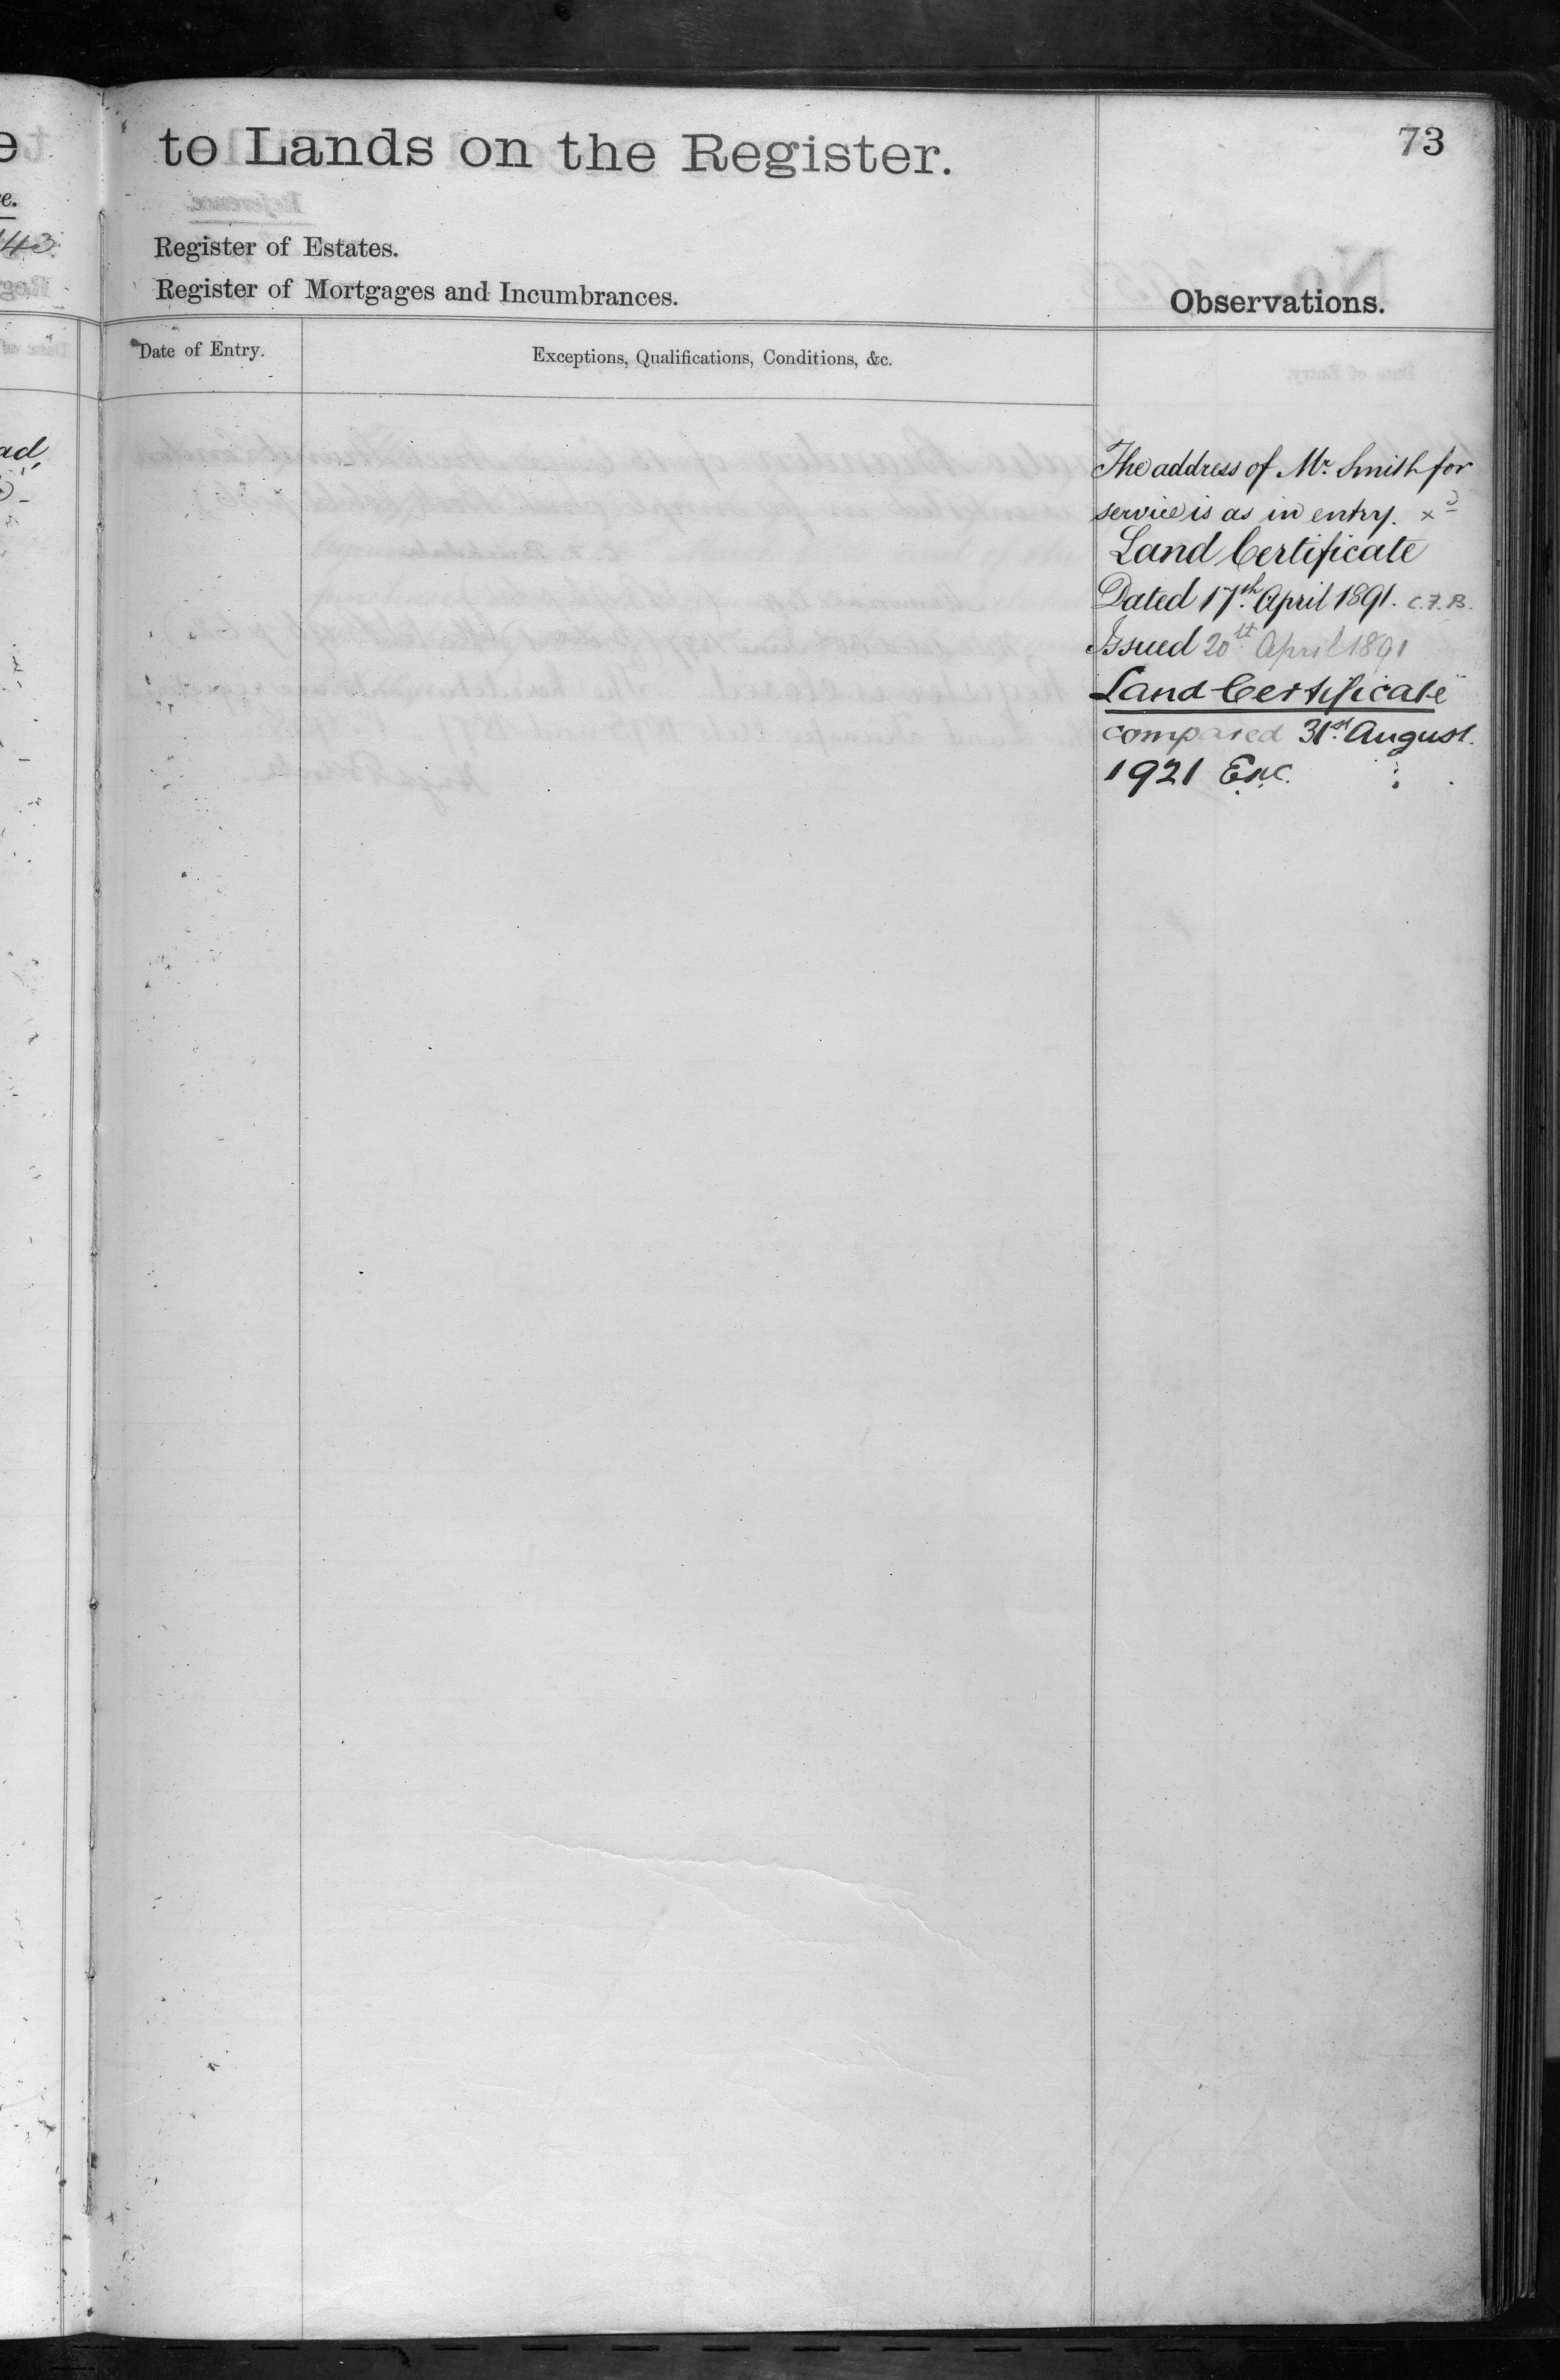 to Lands on the Register.
73
Register of Estates.
Register of Mortgages and Incumbrances.
Observations.
Date of Entry.
Exceptions, Qualifications, Conditions, &c.
The address of Mr. Smith for
service is as in entry. x
Land Certificate
Dated 17th April 1891. C.F.B.
Issued 20th April 1891
Land Certificate
compared 31st August.
1921